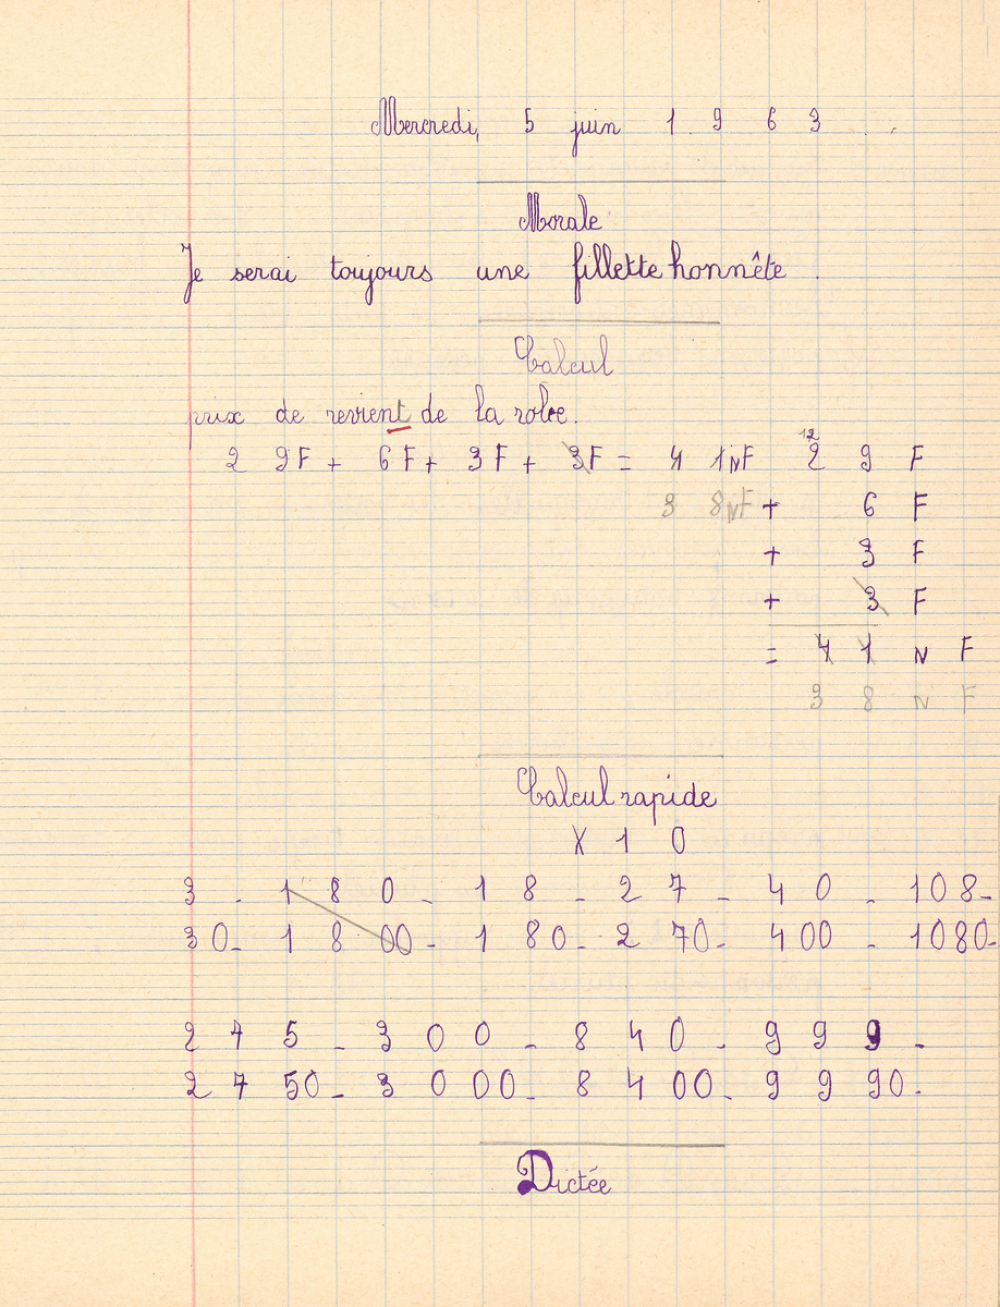 Mercredi, 5 juin 1963.
Morale
Je serai toujours une fillette honnête.
Calcul
prix de revient de la robe.
29F + 6F + 3F + 3F = 41NF
38NF
12
29 F
+ 6 F
+ 3 F
+ 3 F
= 41 NF
38 NF
Calcul rapide
X 10
3 - 180 - 18 - 27 - 40 - 108-
30- 1800- 180- 270- 400 - 1080-
275 - 300 - 840 - 999 -
2750- 3000- 8400- 9990-
Dictée